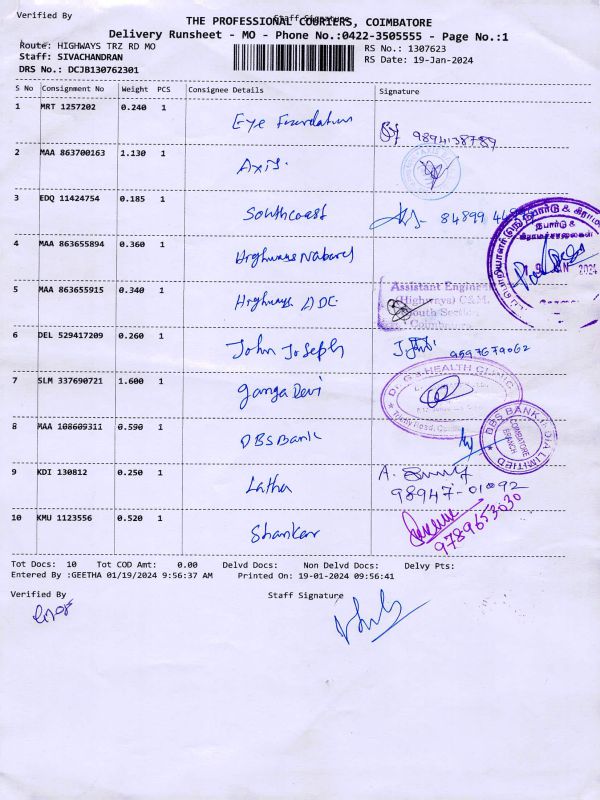 Verified By
Staff Signature
THE PROFESSIONAL COURIERS, COIMBATORE
Delivery Runsheet - MO - Phone No.:0422-3505555 - Page No.:1
Route: HIGHWAYS TRZ RD MO
RS No.: 1307623
Staff: SIVACHANDRAN
RS Date: 19-Jan-2024
DRS No.: DCJB130762301
S No Consignment No Weight PCS Consignee Details Signature
1 MRT 1257202 0.240 1 Eye Foundation 9894138789
2 MAA 863700163 1.130 1 Axis.
3 EDQ 11424754 0.185 1 Southcoast 84899
4 MAA 863655894 0.360 1 Highways Nabard
5 MAA 863655915 0.340 1 Highways ADC
Assistant Engineer
(Highways) C&M.
South Section
Coimbatore
JAN 2024
6 DEL 529417209 0.260 1 John Joseph 9597679062
7 SLM 337690721 1.600 1 Ganga Devi
HEALTH CLINIC
8 MAA 108609311 0.590 1 DBS Bank
DBS BANK INDIA LIMITED
COIMBATORE BRANCH
9 KDI 130812 0.250 1 Latha 98947-01092
10 KMU 1123556 0.520 1 Shankar 9789653030
Tot Docs: 10 Tot COD Amt: 0.00 Delvd Docs: Non Delvd Docs: Delvy Pts:
Entered By :GEETHA 01/19/2024 9:56:37 AM Printed On: 19-01-2024 09:56:41
Verified By Staff Signature